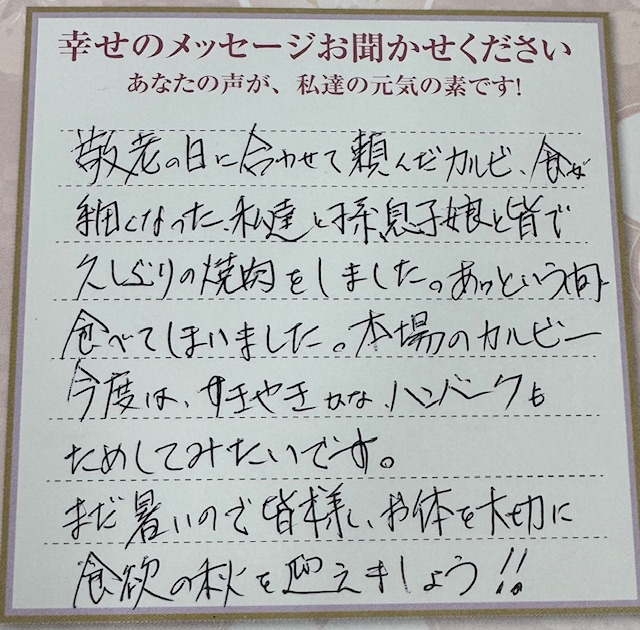 幸せのメッセージお聞かせください
あなたの声が、私達の元気の素です!
敬老の日に合わせて頼んだカルビ、食が
細くなった私達と孫、息子娘と皆で
久しぶりの焼肉をしました。あっという間に
食べてしまいました。本場のカルビー
今度は、すきやきかな、ハンバークも
ためしてみたいです。
まだ暑いので皆様、お体を大切に
食欲の秋を迎えましょう!!